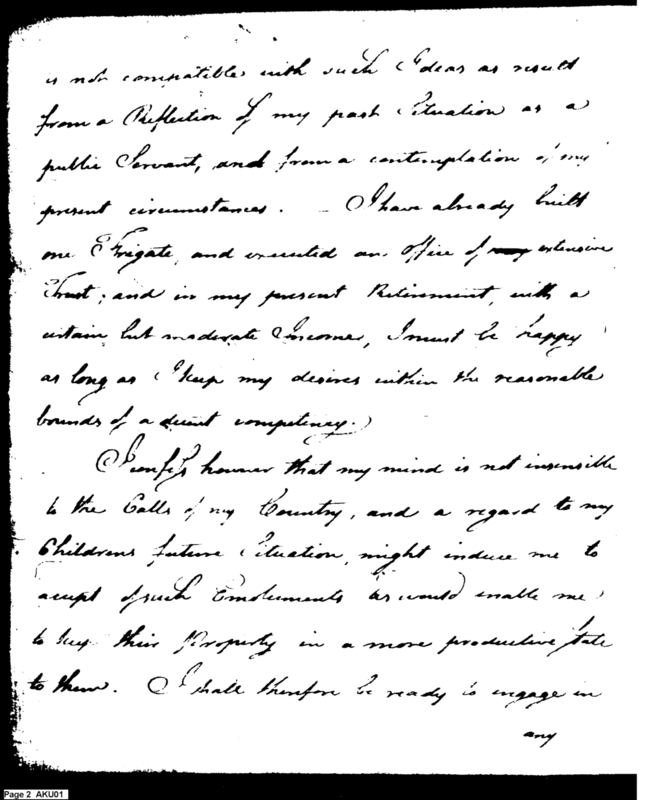 is not compatible with such Ideas as result
from a Reflection of my past Situation as a
public Servant, and from a contemplation of my
present circumstances. _ I have already built
one Frigate, and executed an office of extensive
Trust; and in my present Retirement, with a
certain but moderate Income, I must be happy
as long as I keep my desires within the reasonable
bounds of a decent competency.
I confess however that my mind is not insensible
to the Calls of my Country, and a regard to my
Childrens future Situation, might induce me to
accept of such Emoluments as would enable me
to keep their Property in a more productive state
to them. I shall therefore be ready to engage in
any
Page 2 AKU01